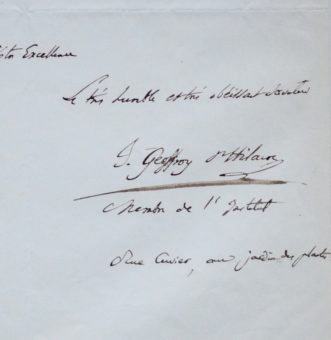 Votre Excellence
Le très humble et très obéissant serviteur
I. Geoffroy St Hilaire
Membre de l'Institut
Rue Cuvier, au jardin des plantes